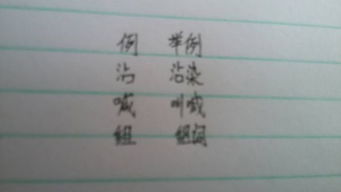 例 举例
沾 沾染
喊 叫喊
组 组词